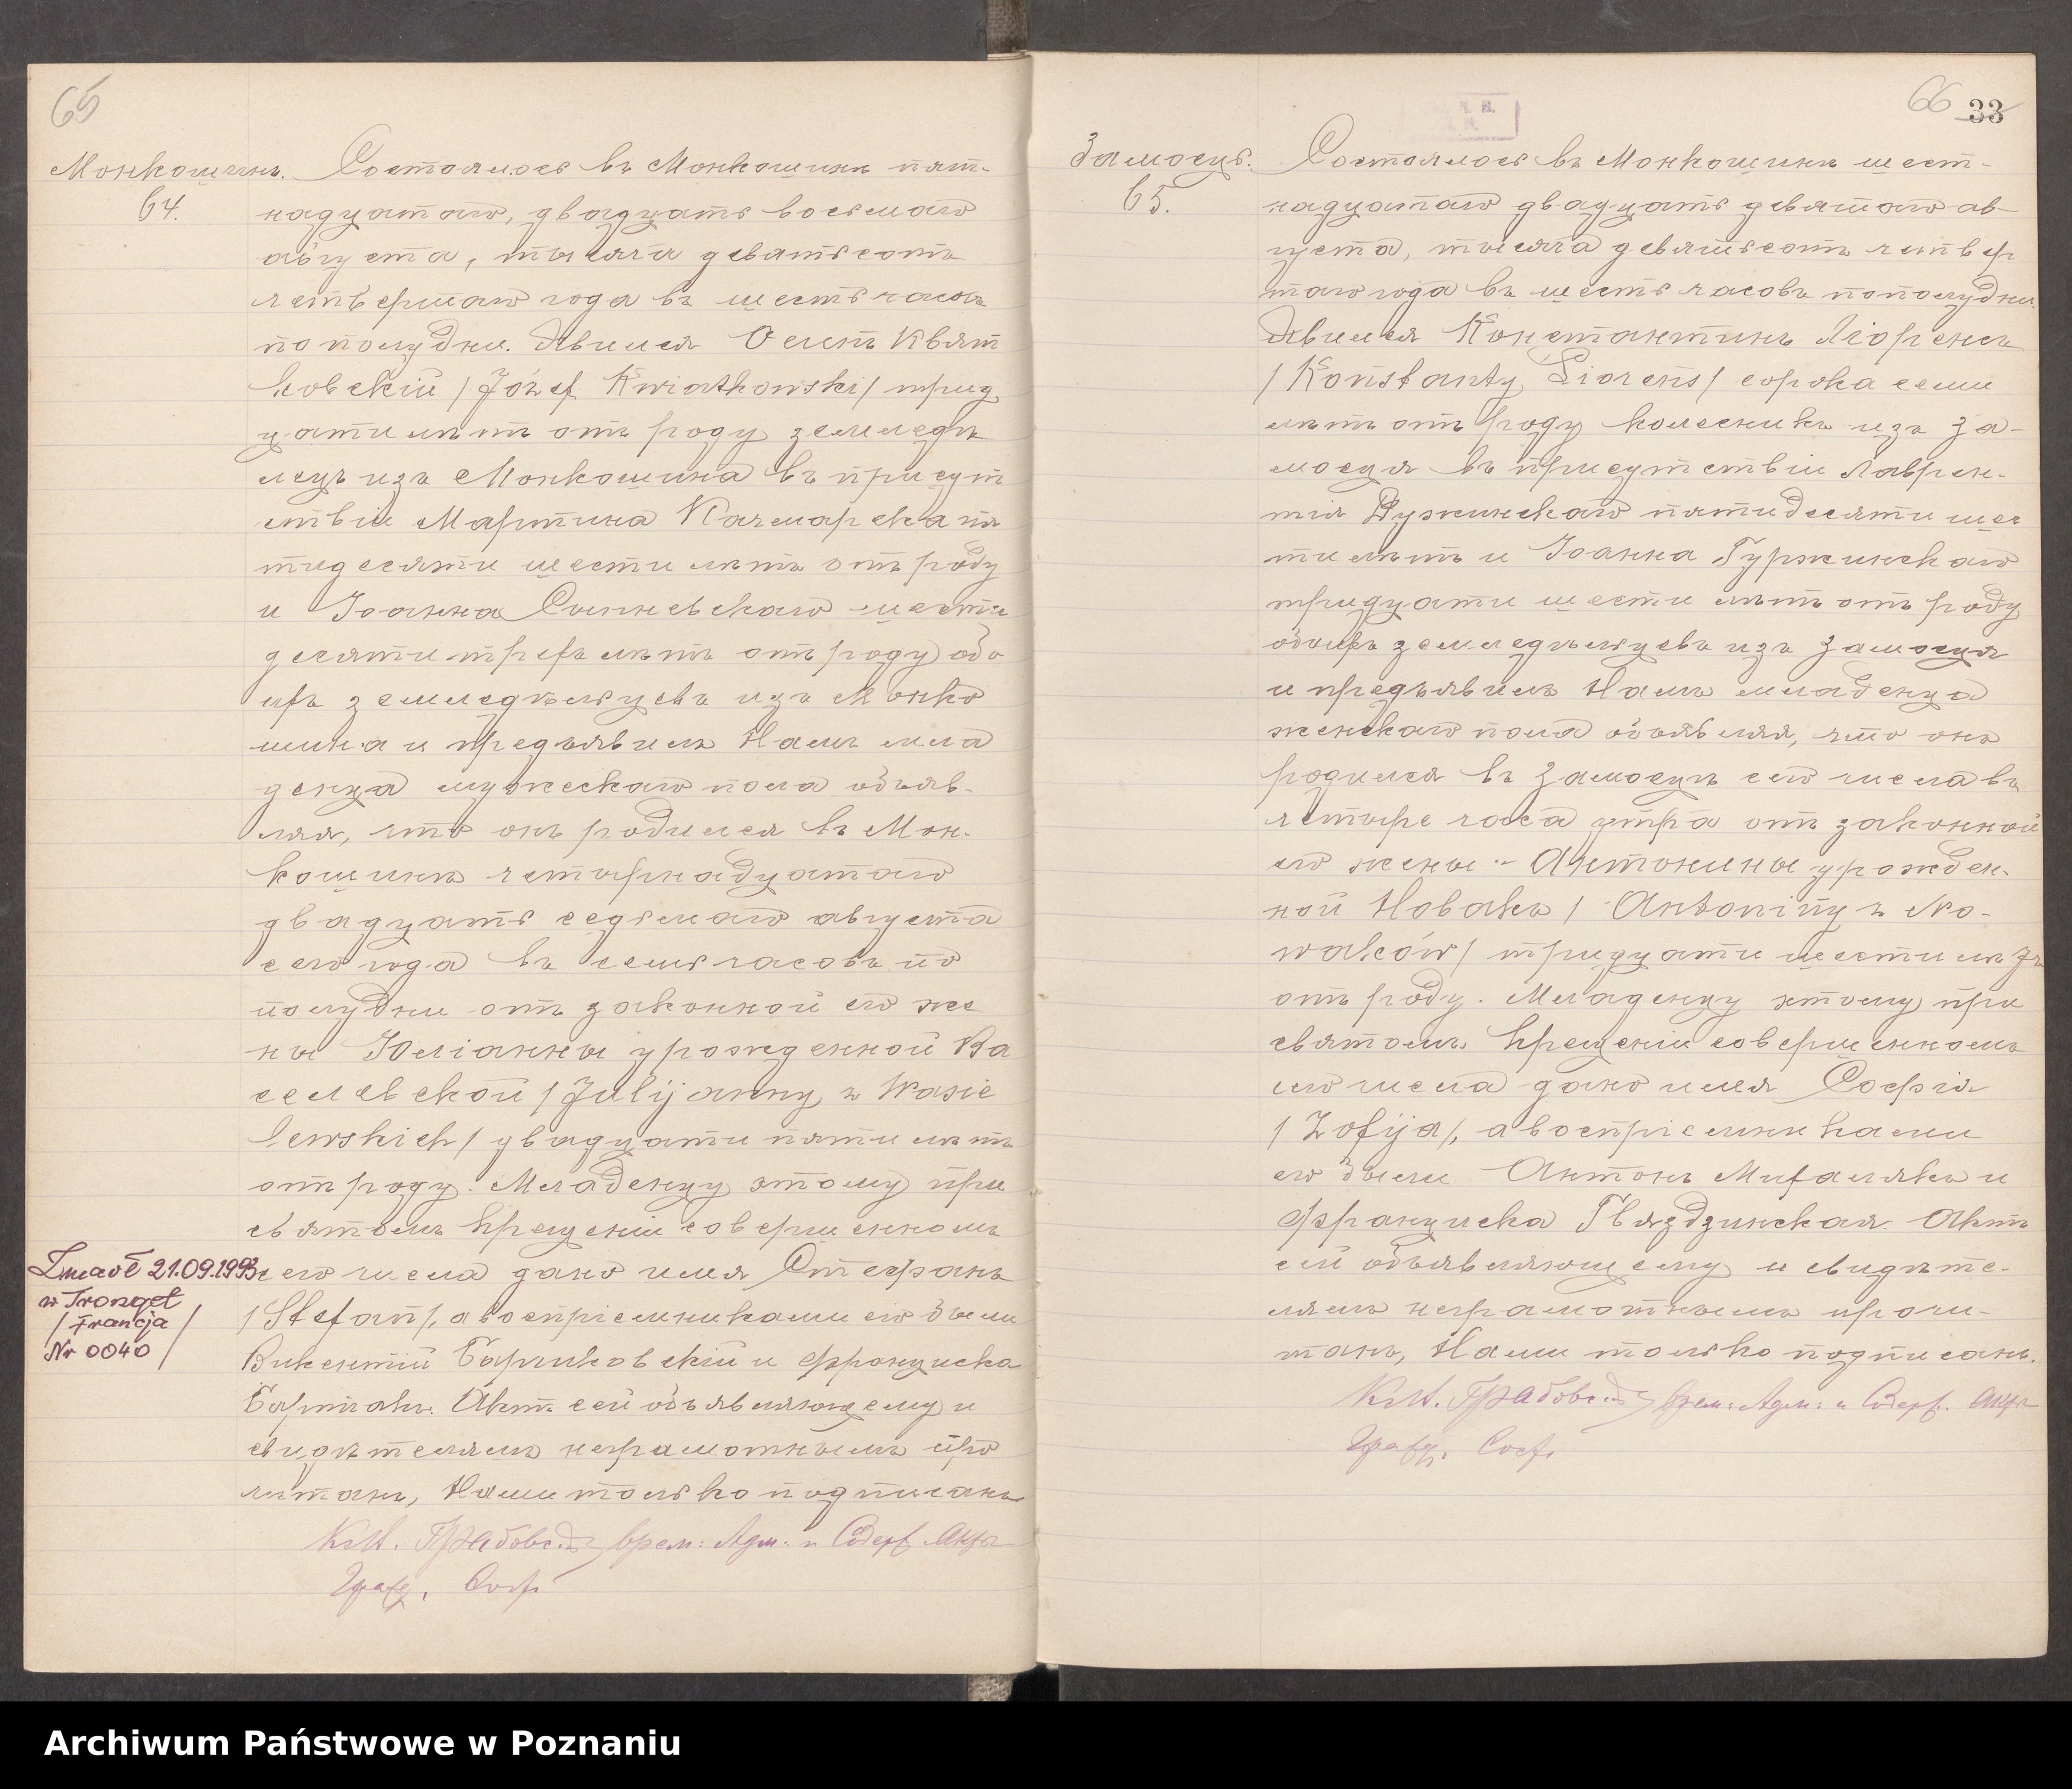 65
Монкошинъ.
64.
Состоялось въ Монкошинѣ пят-
надцатаго, двадцать восьмаго
августа, тысяча девятьсотъ
четвертаго года въ шесть часовъ
пополудни. Явился Осипъ Квят
ковскій /Józef Kwiatkowski/ трид
цати лѣтъ отъ роду земледѣ
лецъ изъ Монкошина въ присут
ствіи Мартина Качмарека пя
тидесяти шести лѣтъ отъ роду
и Іоанна шести
десяти трехъ лѣтъ отъ роду обо
ихъ земледѣльцевъ изъ Монко
шина и предъявилъ Намъ мла
денца мужескаго пола объяв-
ляя, что онъ родился въ Мон-
кошинѣ четырнадцатаго
двадцать седьмаго августа
сего года въ семь часовъ по
полудни отъ законной его же
ны Юліанны урожденной Ва
селевской /Julijanny z Wasie
lewskich/ двадцати пяти лѣтъ
отъ роду. Младенцу этому при
святомъ крещеніи совершенномъ
сего числа дано имя Стефанъ
/Stefan/, а воспріемниками его были
Викентій Барчиковскій и Францишка
Бартакъ. Актъ сей объявляющему и
свидѣтелямъ неграмотнымъ про
читанъ, Нами только подписанъ
Кс. М. Грабовскій врем: Адм: и Содерж. Акты
Гражд. Сост.
Zmarł 21.09.1993
w Tronget
/Francja/
Nr 0040
66 33
Замосце.
65.
Состоялось въ Монкошинѣ шест-
надцатаго двадцать девятаго ав-
густа, тысяча девятьсотъ четвер
таго года въ шесть часовъ пополудни.
Явился Константинъ Ліоренсъ
/Konstanty Liorens/ сорока семи
лѣтъ отъ роду колесникъ изъ За-
мосця въ присутствіи Лаврен-
тія пятидесяти шес
ти лѣтъ и Іоанна Гуржинскаго
тридцати шести лѣтъ отъ роду
обоихъ земледѣльцевъ изъ Замосця
и предъявилъ Намъ младенца
женскаго пола объявляя, что онъ
родился въ Замосцѣ сего числа въ
четыре часа утра отъ законной
его жены - Антонины урожден-
ной Новакъ / Antoniny z No-
waków/ тридцати шести лѣтъ
отъ роду. Младенцу этому при
святомъ крещеніи совершенномъ
сего числа дано имя Софія
/Zofija/, а воспріемниками
его были Антонъ Михалякъ и
Францишка Гвяздзинская. Актъ
сей объявляющему и свидѣте-
лямъ неграмотнымъ прочи-
танъ, Нами только подписанъ.
Кс. М. Грабовскій врем: Адм: и Содерж. Акты
Гражд. Сост.
Archiwum Państwowe w Poznaniu